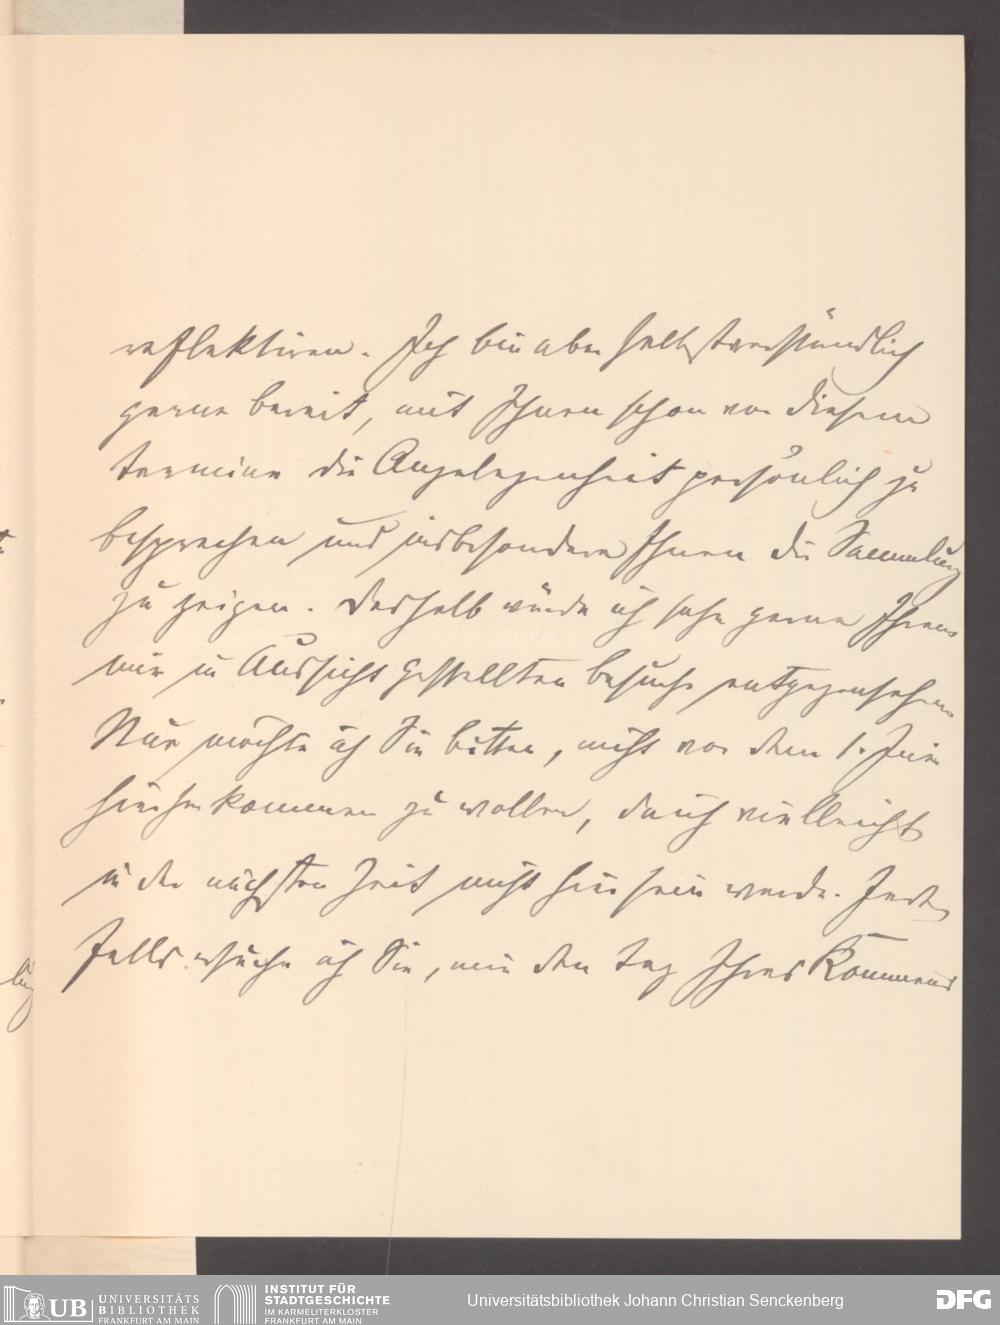 reflektiren. Ich bin aber selbstverständlich
gerne bereit, mit Ihnen schon vor diesem
Termine die Angelegenheit persönlich zu
besprechen und insbesondere Ihnen die Sammlung
zu zeigen. Deshalb würde ich sehr gerne Ihrem
mir in Aussicht gestellten Besuche entgegensehen.
Nur möchte ich Sie bitten, nicht vor dem 1. Juni
hierher kommen zu wollen, da ich vielleicht
in der nächsten Zeit nicht hier sein werde. Jeden
Falls ersuche ich Sie, mir den Tag Ihres Kommens
UB UNIVERSITÄTS
BIBLIOTHEK
FRANKFURT AM MAIN
INSTITUT FÜR
STADTGESCHICHTE
IM KARMELITERKLOSTER
FRANKFURT AM MAIN
Universitätsbibliothek Johann Christian Senckenberg
DFG